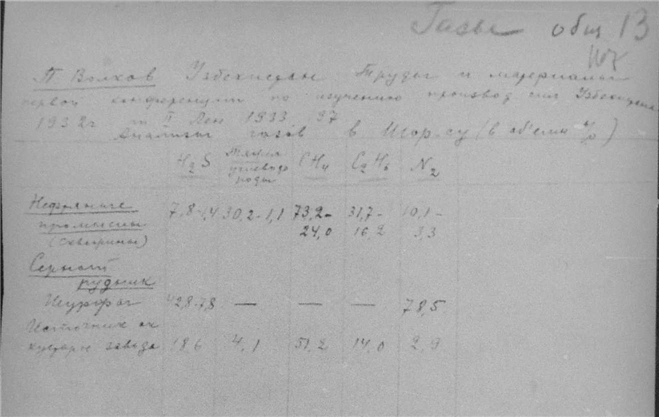 Газы общ 13
107
П. Волхов Узбекистан Труды и материалы
первой конференции по изучению производ. сил Узбекистана
1932 г. т II Лен 1933. 97
Анализы газов в Шор-су (в об'емн %)
H₂S Тяжел. углеводороды CH₄ C₂H₆ N₂
Нефтяные 7,8-1,4 30,2-1,1 73,2- 31,7- 10,1-
промыслы 24,0 16,2 3,3
(скважины)
Серный
рудник
42,8-7,8 — — — 78,5
Источник ок
завода 18,6 4,1 51,2 14,0 2,9